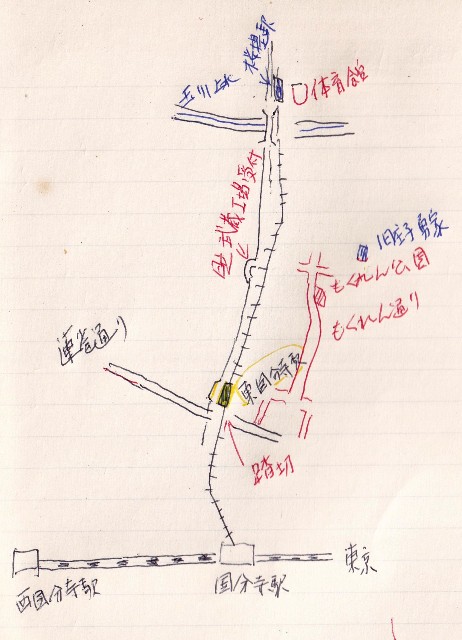 桜堤駅
体育館
玉川上水
武蔵工場受付
旧庄子勇家
もくれん公園
もくれん通り
連雀通り
東国分寺駅
踏切
東京
西国分寺駅
国分寺駅